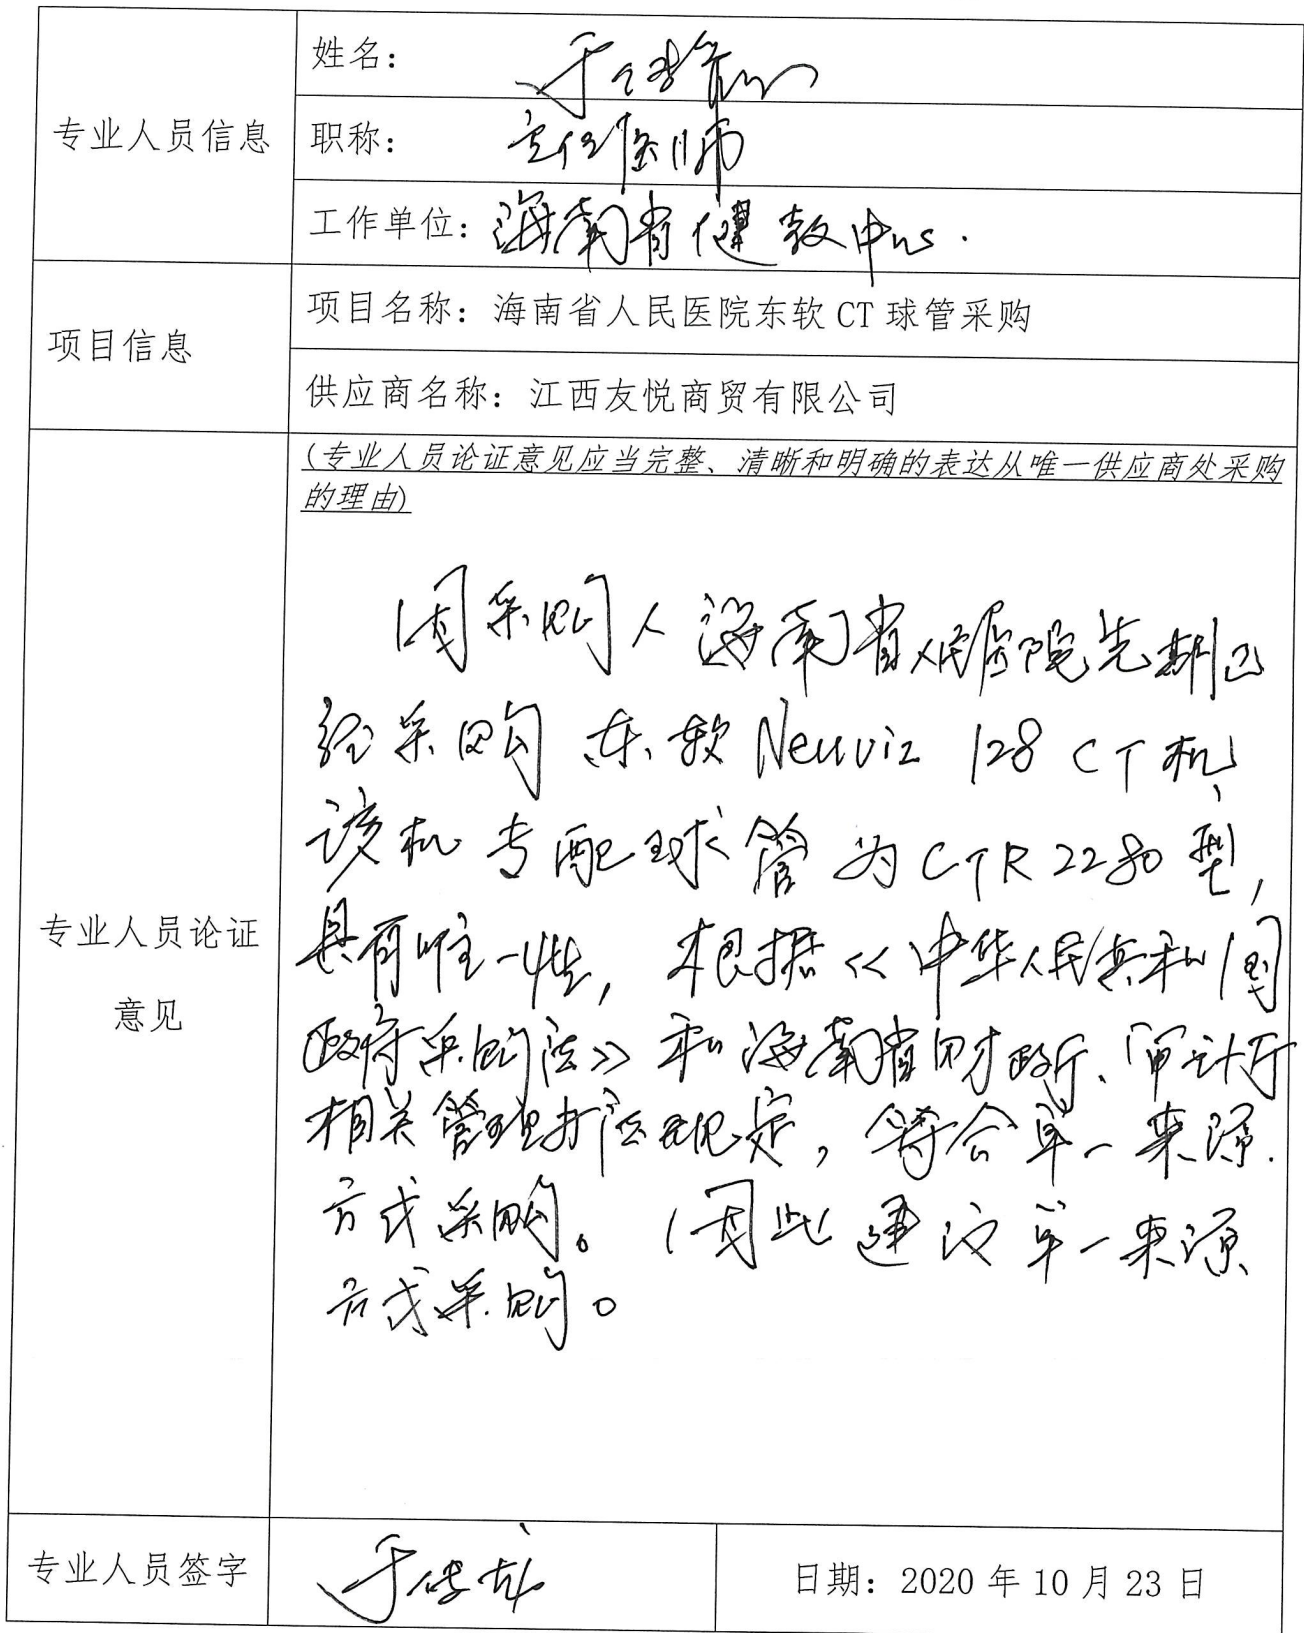 专业人员信息
姓名：于
职称：主任医师
工作单位：海南省健教中心.
项目信息
项目名称：海南省人民医院东软 CT 球管采购
供应商名称：江西友悦商贸有限公司
专业人员论证
意见
(专业人员论证意见应当完整、清晰和明确的表达从唯一供应商处采购
的理由)
因采购人海南省人民医院先期已
经采购东软Neuviz 128 CT机,
该机专配球管为CTR2280型,
具有唯一性, 根据《中华人民共和国
政府采购法》和海南省财政厅、审计厅
相关管理办法规定, 符合单一来源
方式采购。因此建议单一来源
方式采购。
专业人员签字
于
日期：2020 年 10 月 23 日